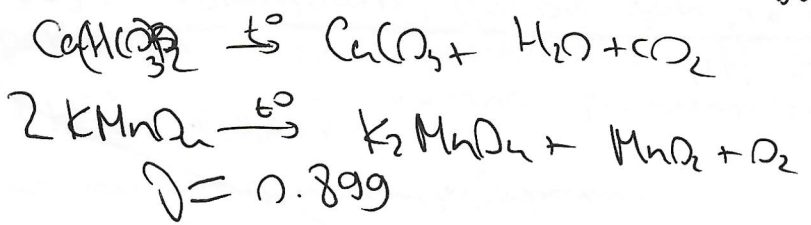 Ca(HCO3)2 t° → CaCO3 + H2O + CO2
2 KMnO4 t° → K2MnO4 + MnO2 + O2
D = 0.899